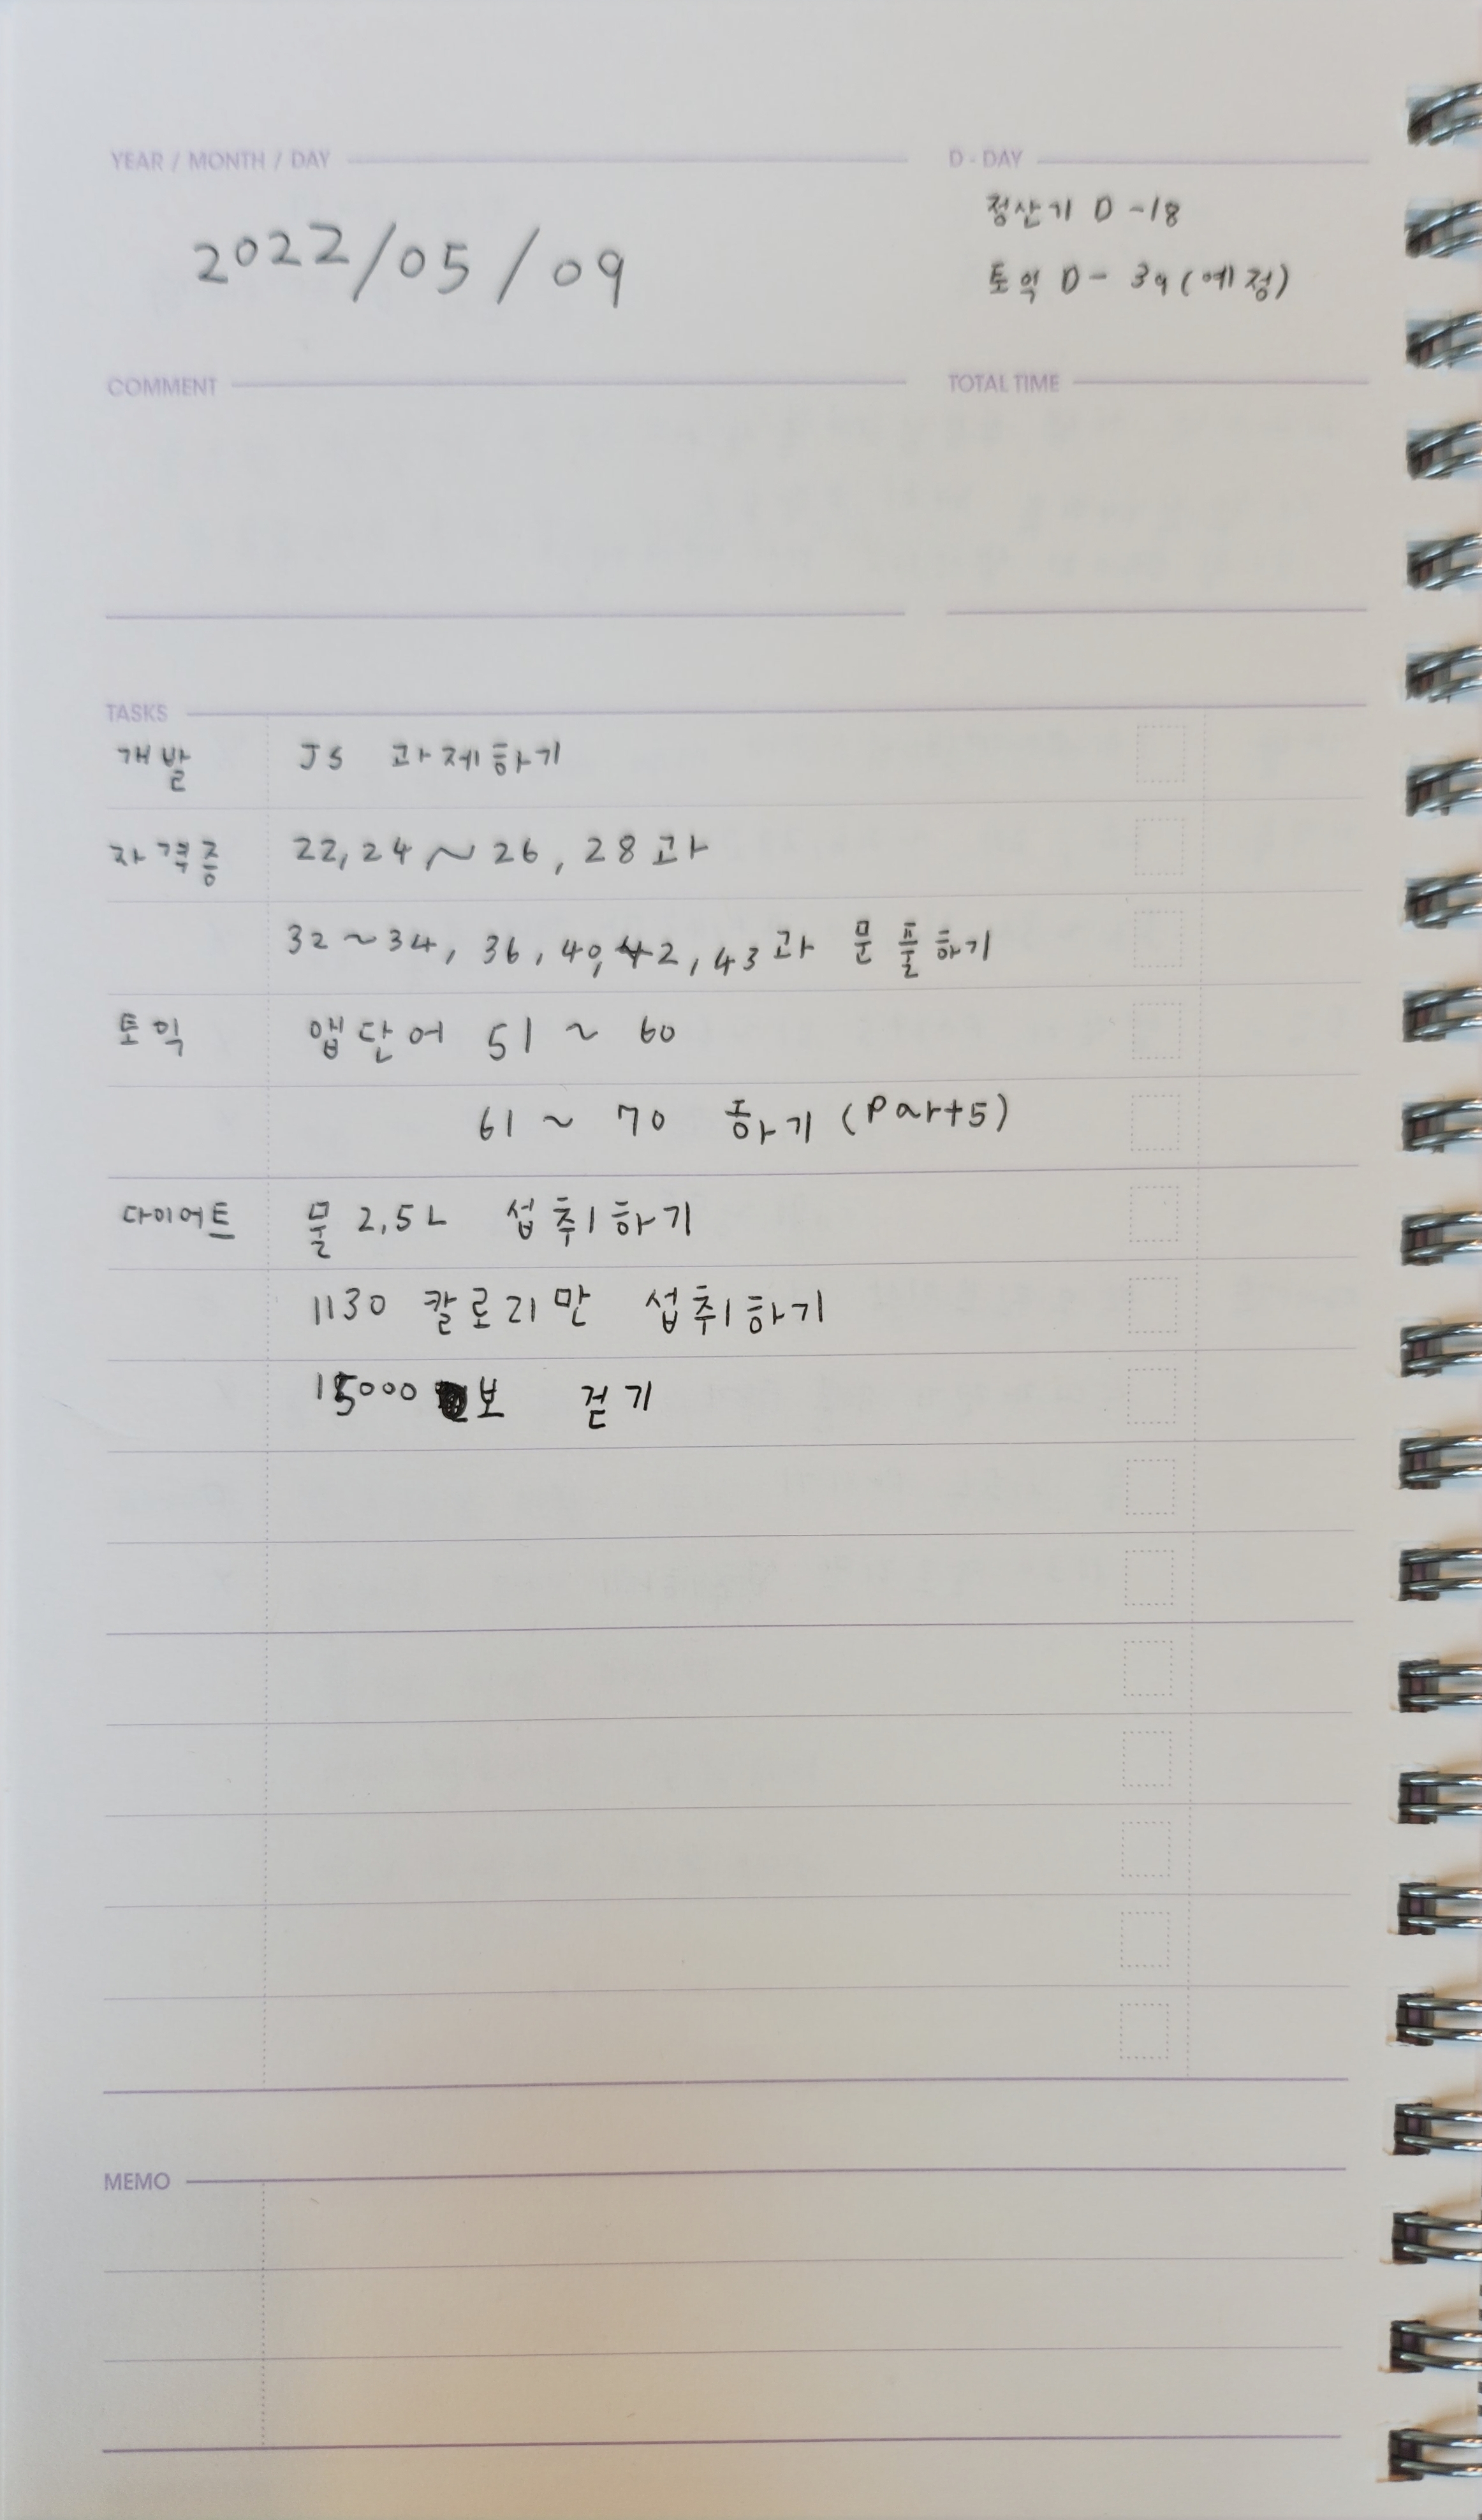 YEAR / MONTH / DAY
2022/05/09
D-DAY
정산기 D-18
토익 D-39(예정)
COMMENT
TOTAL TIME
TASKS
개발 JS 과제하기
자격증 22, 24~26, 28과
32~34, 36, 40, 42, 43과 문풀하기
토익 앱단어 51~60
61~70 하기(Part5)
다이어트 물 2.5L 섭취하기
1130 칼로리만 섭취하기
15000 보 걷기
MEMO